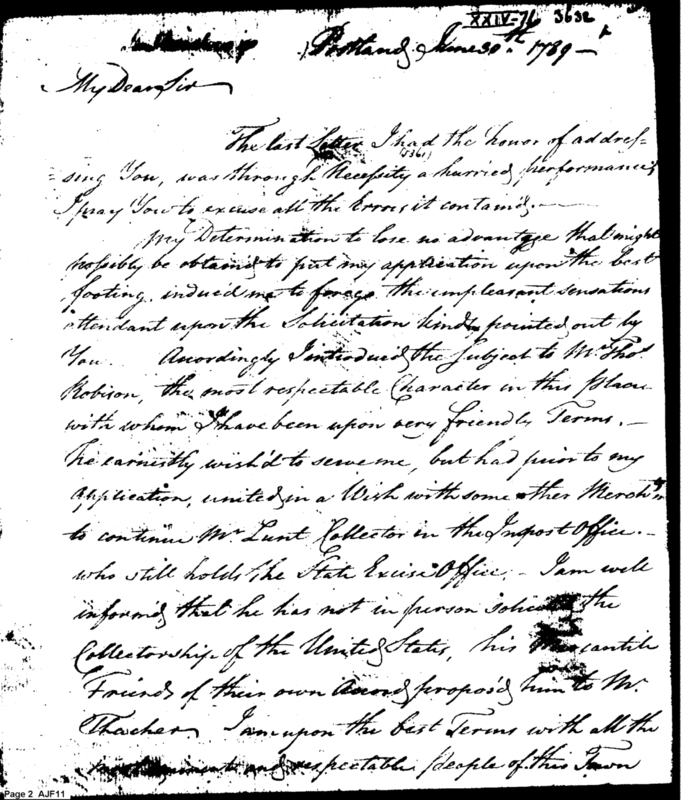 XXIV-76 3632
Portland, June 30th. 1789 -
My Dear Sir
The last Letter I had the honor of addres=
(3361)
=sing You, was through Necessity a hurried performance,
I pray You to excuse all the Errors it contains. —
My Determination to lose no advantage that might
possibly be obtained to put my application upon the best
footing, induced me to forego the unpleasant sensations
attendant upon the Solicitation kindly pointed out by
You. Accordingly I introduced the Subject to Mr. Thos.
Robison, the most respectable Character in this place
with whom I have been upon very friendly Terms. —
he earnestly wish'd to serve me, but had prior to my
application, united in a Wish with some other Merch
to continue Mr Lunt Collector in the Inpost Office. —
who still holds the State Excise Office. - I am well
inform'd that he has not in person the
Collectorship of the United States, his Mercantile
Friends of their own Accord propos'd him to Mr.
Thacher I am upon the best Terms with all the
and respectable people of this Town
Page 2 AJF11